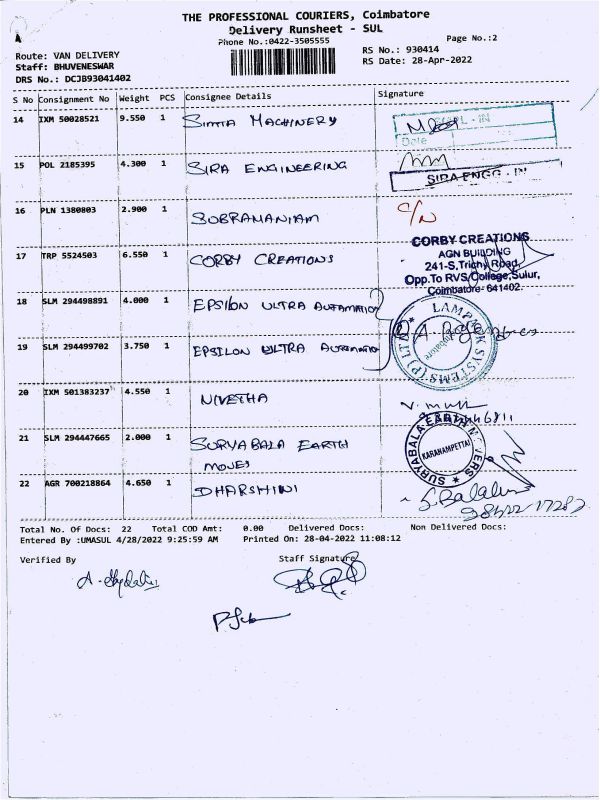 THE PROFESSIONAL COURIERS, Coimbatore
Delivery Runsheet - SUL
Phone No.:0422-3505555
Page No.:2
Route: VAN DELIVERY
RS No.: 930414
Staff: BHUVENESWAR
RS Date: 28-Apr-2022
DRS No.: DCJB93041402
S No Consignment No Weight PCS Consignee Details Signature
14 IXM 50028521 9.550 1 MACHINERY
15 POL 2185395 4.300 1 SIRA ENGINEERING
SIRA ENGG - IN
16 PLN 1380803 2.900 1 SUBRAMANIAM C/N
17 TRP 5524503 6.550 1 CORBY CREATIONS
CORBY CREATIONS
AGN BUILDING
241-S, Trichy Road,
Opp.To RVS College, Sulur,
Coimbatore- 641402.
18 SLM 294498891 4.000 1 EPSILON ULTRA AUTOMATION
19 SLM 294499702 3.750 1 EPSILON ULTRA AUTOMATION
SYSTEMS (P) LTD
Coimbatore
20 IXM 501383237 4.550 1 NIVETHA
21 SLM 294447665 2.000 1 SURYABALA EARTH
MOVES
SURYABALA EARTH MOVERS
KARANAMPETTAI
22 AGR 700218864 4.650 1 DHARSHINI
Total No. Of Docs: 22 Total COD Amt: 0.00 Delivered Docs: Non Delivered Docs:
Entered By :UMASUL 4/28/2022 9:25:59 AM Printed On: 28-04-2022 11:08:12
Verified By Staff Signature